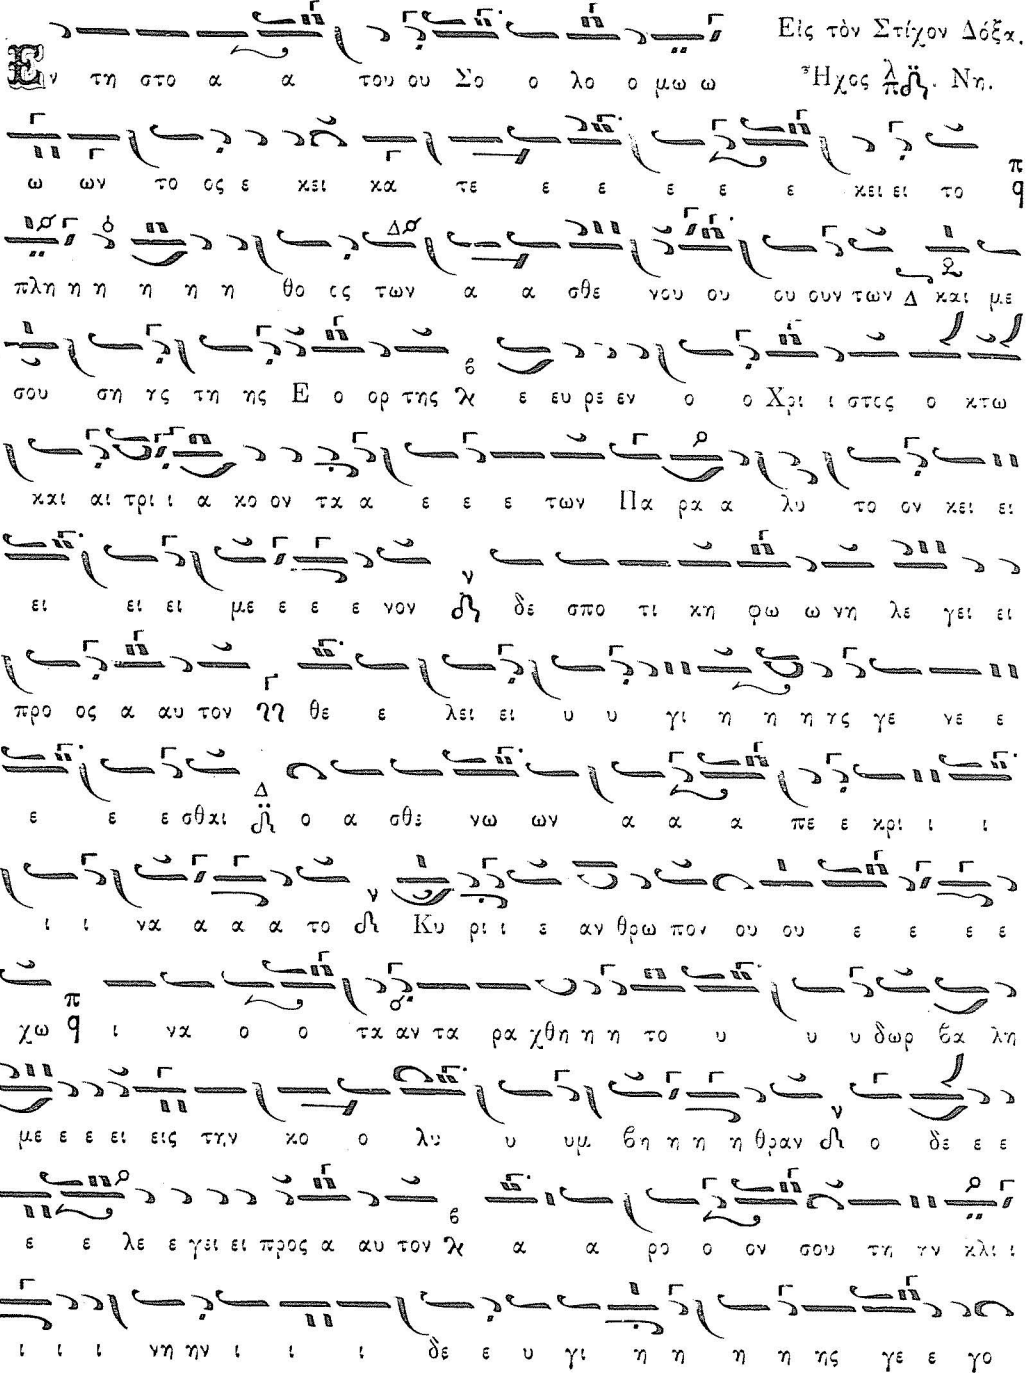 Εἰς τὸν Στίχον Δόξα.
Ἦχος λ π Νη.
Εν τη στο α α του ου Σο ο λο ο μω ω
ω ων το ος ε κει κα τε ε ε ε ε ε ε κει ει το π q
πλη η η η η η θο ος των α α σθε νου ου ου ουν των Δ και με
σου ση ης τη ης Ε ο ορ της ε ευ ρε εν ο ο Χρι ι στος ο κτω
και αι τρι ι α κο ον τα α ε ε ε των Πα ρα α λυ το ον κει ει
ει ει ει με ε ε ε νον δε σπο τι κη φω ω νη λε γει ει
προ ος α αυ τον θε ε λει ει υ υ γι η η η ης γε νε ε
ε ε ε σθαι ο α σθε νω ων α α α πε ε κρι ι ι
ι ι να α α α το Κυ ρι ι ε αν θρω πον ου ου ε ε ε ε
χω π q ι να ο ο τα αν τα ρα χθη η η το υ υ υ δωρ βα λη
με ε ε ε ει εις την κο ο λυ υ υμ βη η η η θραν ο δε ε ε
ε ε λε ε γει ει προς α αυ τον α α ρο ο ον σου τη ην κλι ι
ι ι ι νη ην ι ι ι δε ε υ γι η η η η ης γε ε γο